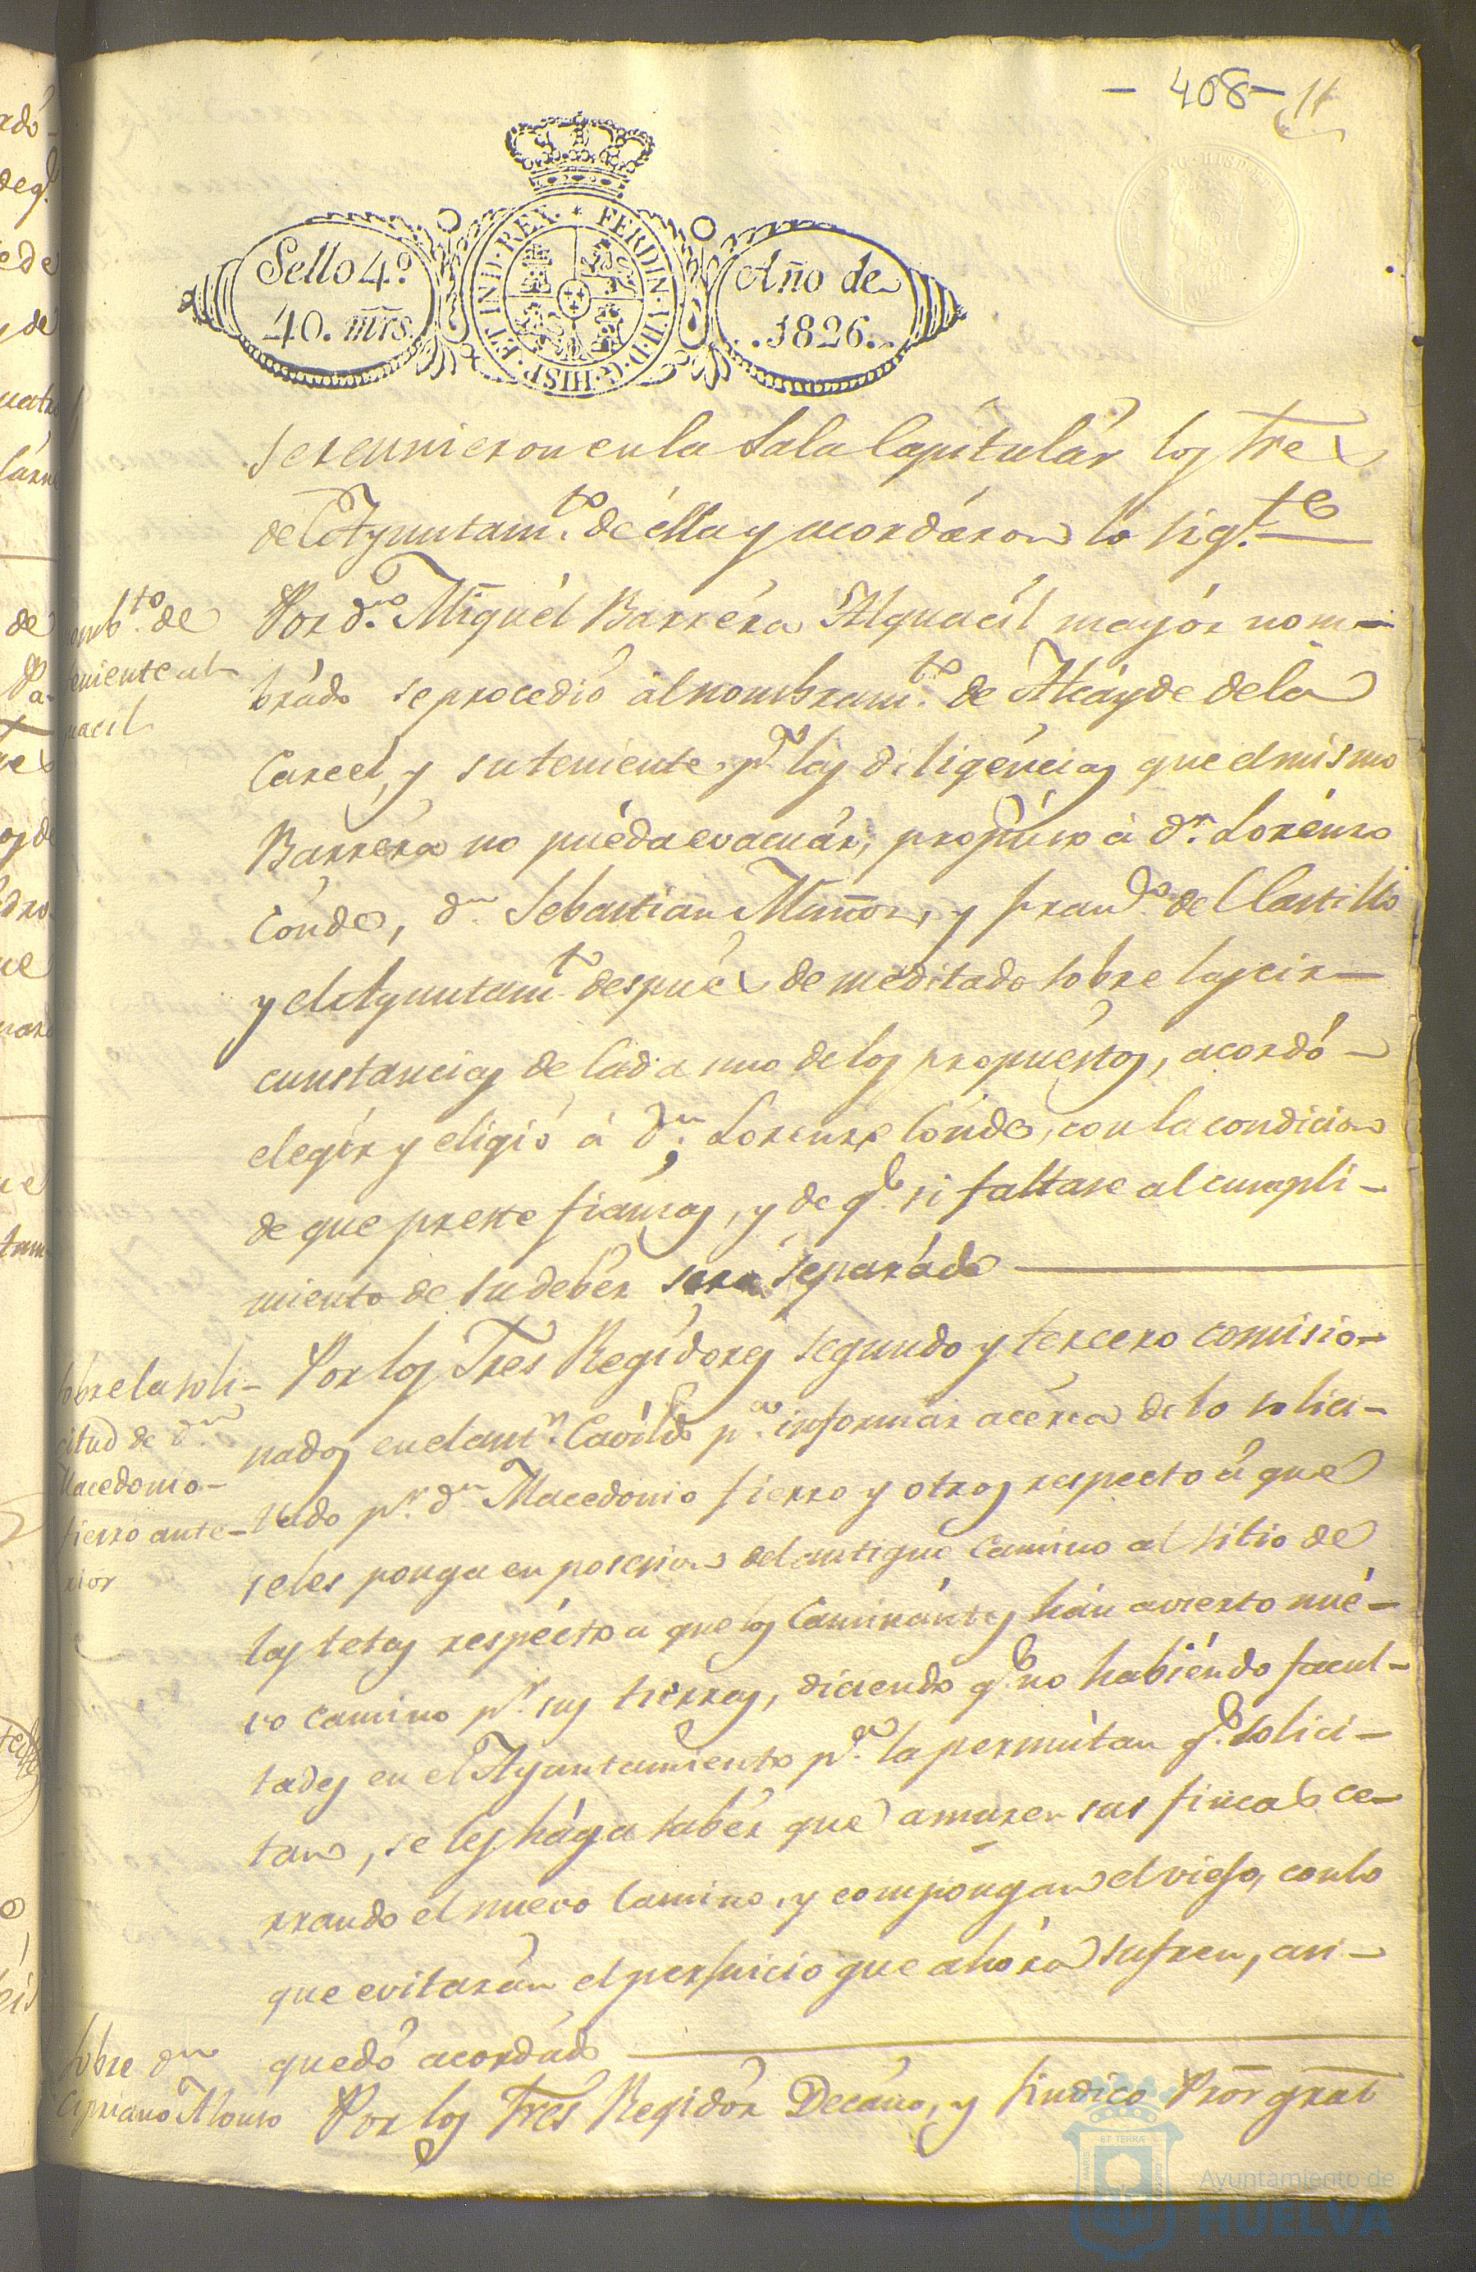 - 408 - 11
Sello 4º
40. mrs.
FERDIN. VII. D. G. HISP. ET IND. REX.
Año de
1826.
se reunieron en la Sala Capitular los Sres
del Ayuntamto. de élla y acordáron lo sigte.
Nombto. de
teniente al
guacil
Por dn. Miguél Barréra Alguacíl mayór nom-
brádo se procedió al nombramto. de Alcáyde de la
Carcel, y su teniente pa. las diligéncias que el mismo
Barréra no puéda evacuár, propúso á dn. Lorénzo
Cónde, dn. Sebastian Muñoz, y Franco. del Castillo
y el Ayuntamto. despues de meditado sobre las cir-
cunstancias de Cada uno de los propuéstos, acordó-
elegír y eligió á dn. Lorenzo Cónde, con la condicion
de que preste fianzas, y de qe. si faltase al cumpli-
miento de su debér será separádo
Sobre la soli-
citud de dn.
Macedonio
fierro ante-
rior
Por los Sres Regidóres segundo y tercero comisio-
nados en el antr. Cavildo pa. informar acérca de lo solici-
tado pr. dn. Macedonio fierro y otros respecto á que
se les ponga en posesion del antiguo Camino al sitio de
las tetas respécto a que los Caminántes hán avierto nué-
vo camino pr. sus tierras, diciendo qe. no habiéndo facul-
tades en el Ayuntamiento pa. la permúta qe. solici-
tan, se les hága sabér que amuren sus fincas ce-
rrando el nuevo Camino, y compongan el viejo, con lo
que evitarán el perjuicio que ahóra sufren, asi-
quedó acordádo
Sobre dn.
Cipriano Alonso
Por los Sres Regidór Decáno, y Sindico Pror gral
Ayuntamiento de
HUELVA